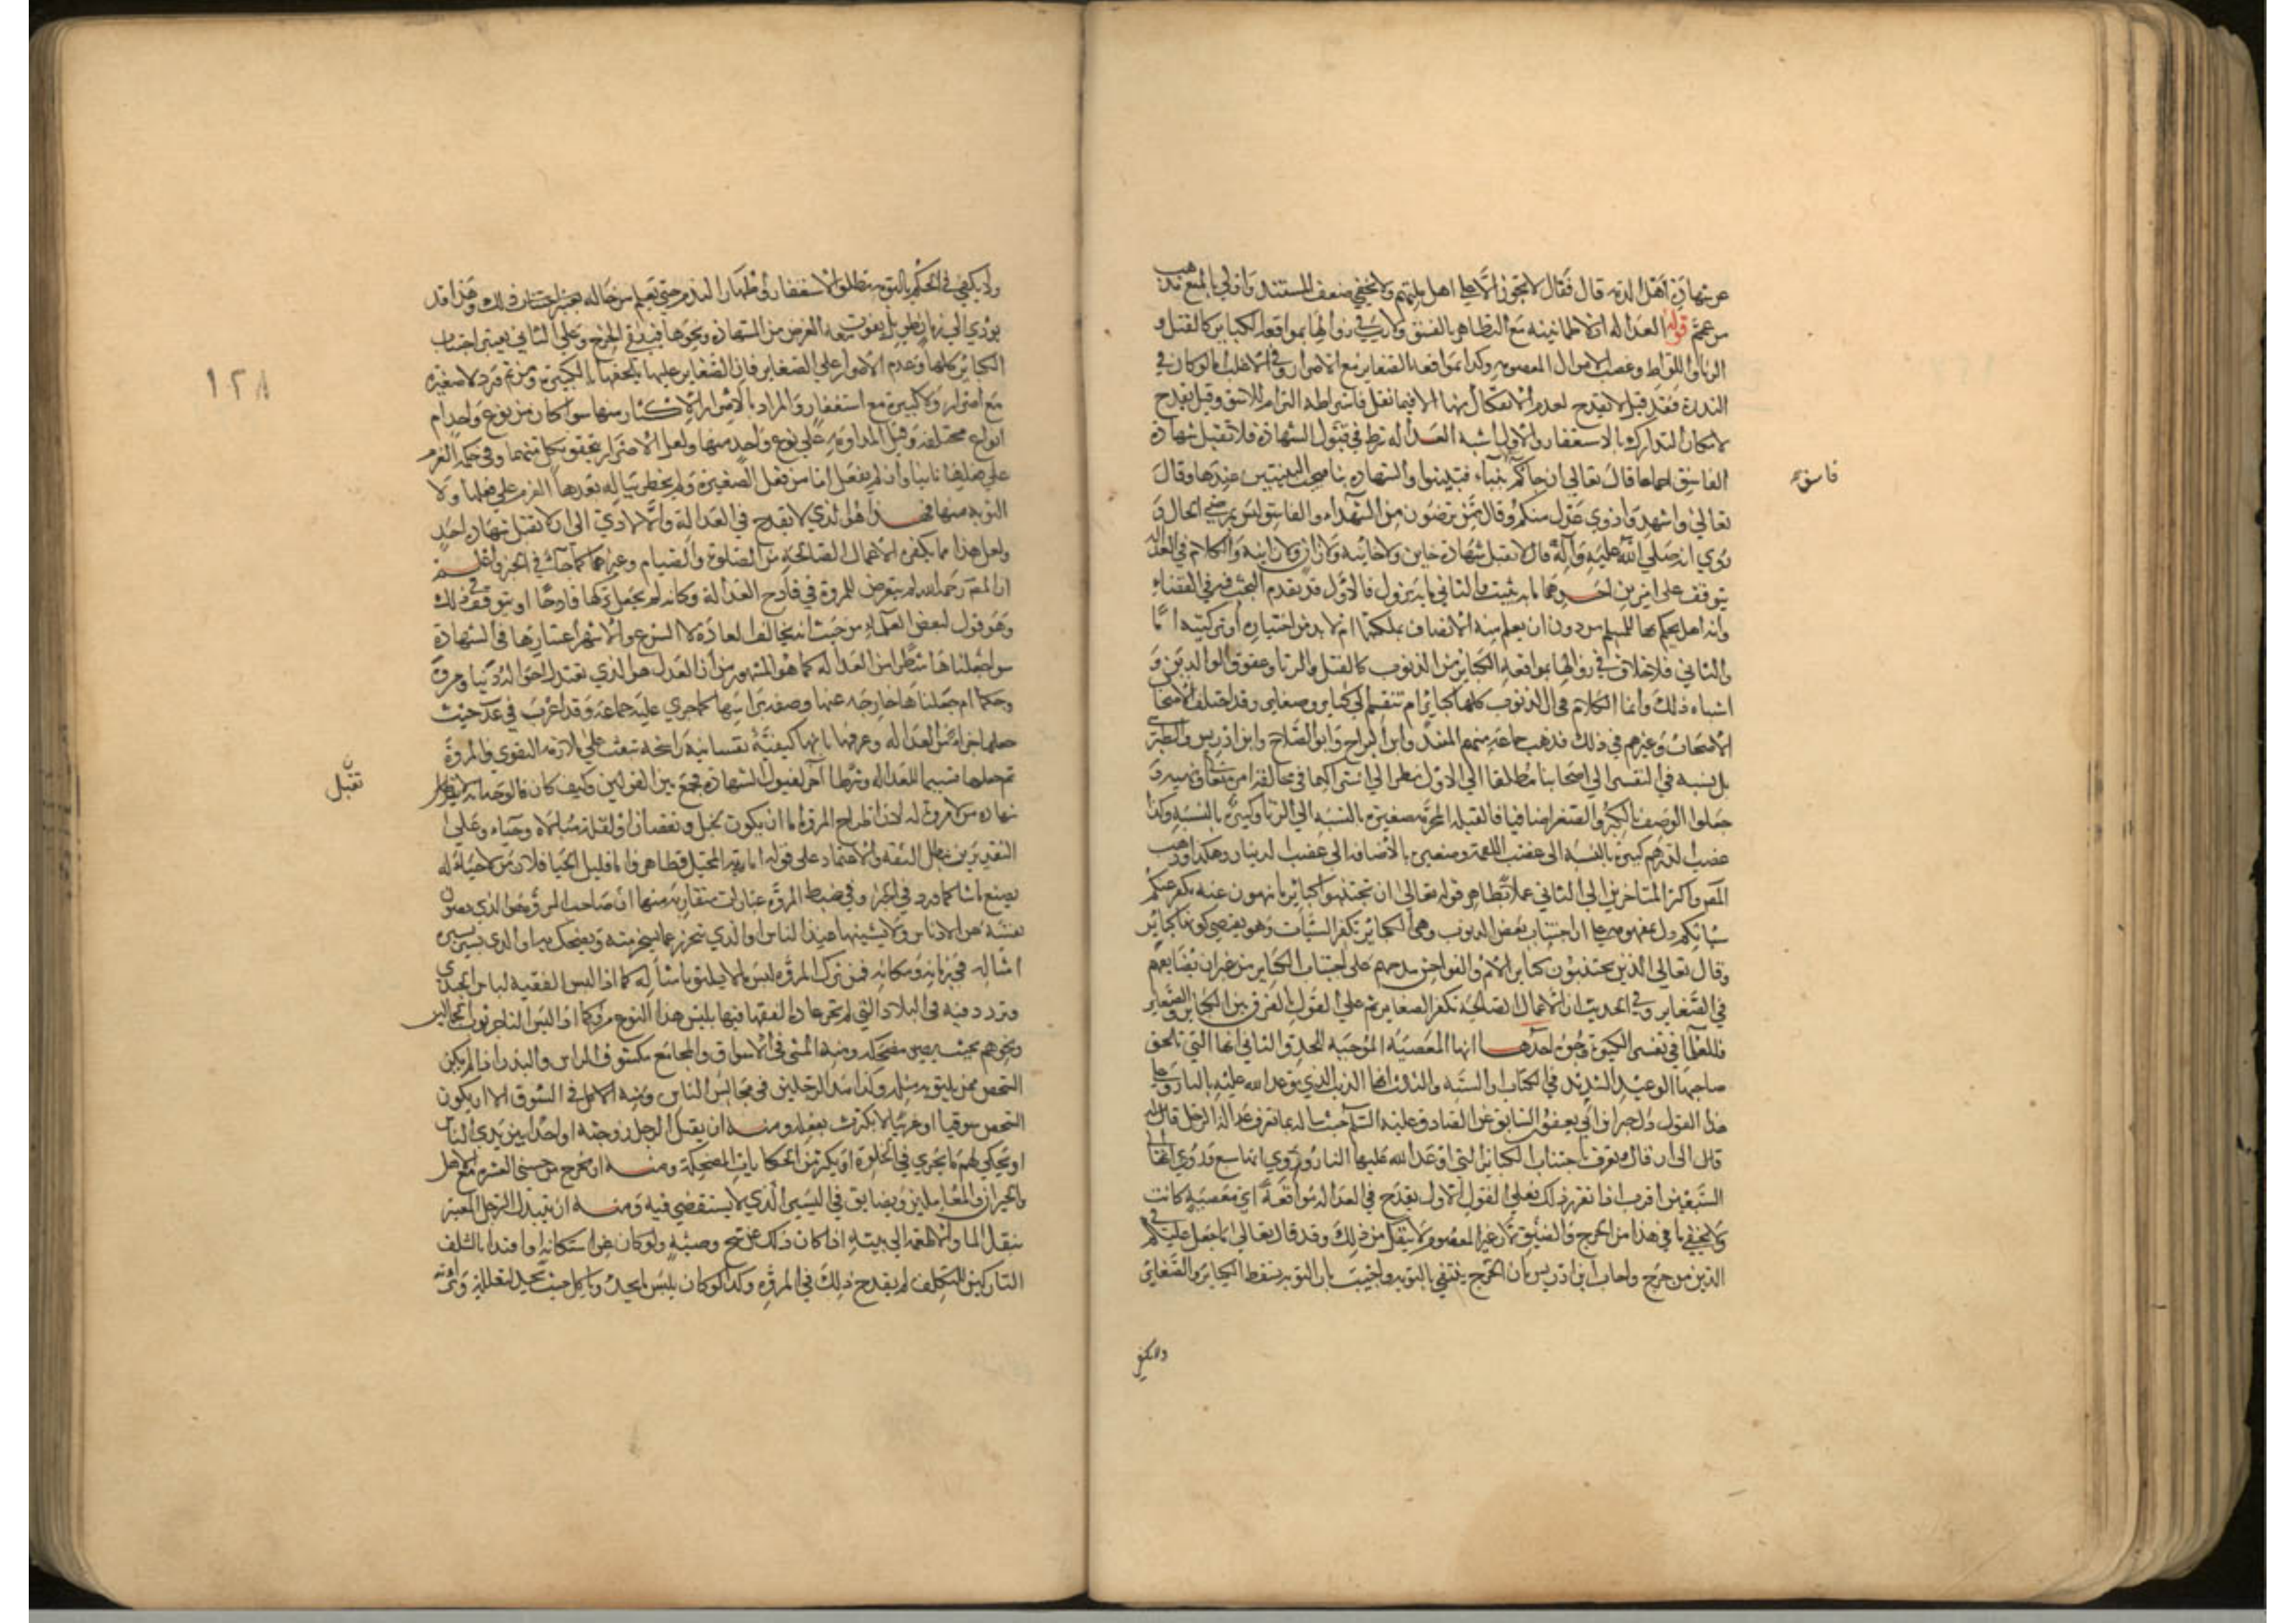 عن شهادة اهل الذمة قال فقال لا تجوز الا على اهل ملتهم ولا يخفى ضعف المستند واولى بالمنع مذهب
من عمم قوله العدالة اذ لا طمانينة مع التظاهر بالفسق ولا ريب في زوالها بمواقعة الكبائر كالقتل و
الزنا واللواط وغصب الاموال المعصومة وكذا بمواقعة الصغاير مع الاصرار وفي الاغلب اما لو كان في
الندرة فقد قيل لا يقدح لعدم الانفكاك منها الا فيما يقل فاشتراطه التزام للاشق وقيل يقدح
لامكان التدارك بالاستغفار والاول اشبه العدالة شرط في قبول الشهادة فلا تقبل شهادة
الفاسق اجماعا قال تعالى ان جاءكم بنباء فتبينوا والشهادة بنا فيجب التبين عندها وقال
فاسق
تعالى واشهدوا ذوي عدل منكم وقال ممن ترضون من الشهداء والفاسق ليس بمرضي الحال و
روي انه صلى الله عليه وآله قال لا تقبل شهادة خاين ولا خاينة ولا زان ولا زانية والكلام في العدالة
يتوقف على امرين احدهما ما به تثبت والثاني ما به تزول فالاول قد تقدم البحث فيه في القضاء
وانه هل يحكم بها للمسلم من دون ان يعلم منه الاتصاف بملكتها ام لا بد من اختياره او تزكيته اما
والثاني فلا خلاف في زوالها بمواقعة الكباير من الذنوب كالقتل والزنا وعقوق الوالدين و
اشباه ذلك وانما الكلام في ان الذنوب كلها كباير ام تنقسم الى كباير وصغاير وقد اختلف الاصحا
الاصحاب وغيرهم في ذلك فذهب جماعة منهم المفيد وابن البراج وابو الصلاح وابن ادريس والطبرسي
بل نسبه في التفسير الى اصحابنا مطلقا الى الاول نظرا الى اشتراكها في مخالفة امره تعالى ونهيه و
جعلوا الوصف بالكبر والصغر اضافيا فالقبلة المحرمة صغيرة بالنسبة الى الزنا وكبيرة بالنسبة وكذا
غصب الدرهم كبيرة بالنسبة الى غصب اللقمة وصغيرة بالاضافة الى غصب الدينار وهكذا وذهب
المص واكثر المتاخرين الى الثاني عملا بظاهر قوله تعالى ان تجتنبوا كباير ما تنهون عنه نكفر عنكم
سيئاتكم دل بمفهومه على ان اجتناب بعض الذنوب وهي الكباير تكفر السيئات وهو يقتضي كونها كباير
وقال تعالى الذين يجتنبون كباير الاثم والفواحش مدحهم على اجتناب الكباير من غير ان يضايقهم
في الصغاير وفي الحديث ان الاعمال الصالحة تكفر الصغاير ثم على القول بالفرق بين الكباير والصغاير
فللعلماء في تفسير الكبيرة وجوه احدها انها المعصية الموجبة للحد والثاني انها التي تلحق
صاحبها الوعيد الشديد في الكتاب او السنة والثالث انها الذنب الذي توعد الله عليه بالنار وعلى
هذا القول دل خبر ابن ابي يعفور السابق عن الصادق عليه السلام حيث ساله بما تعرف عدالة الرجل قال
قال الى ان قال ويعرف باجتناب الكباير التي اوعد الله عليها النار وروي انها سبع وروي انها الى
السبعين اقرب اذا تقرر ذلك فعلى القول الاول يقدح في العدالة مواقعة اي معصية كانت
ولا يخفى ما في هذا من الحرج والضيق لان غير المعصوم لا ينفك من ذلك وقد قال تعالى ما جعل عليكم في
الدين من حرج واجاب ابن ادريس بان الحرج ينتفي بالتوبة واجيب بان التوبة تسقط الكباير والصغاير
ولا يكفي
١٢٨
ولا يكفي في الحكم بالتوبة مطلق الاستغفار او اظهار الندم حتى يعلم من حاله ذلك وهذا قد
يؤدي الى زمان طويل يفوت معه الغرض من الشهادة ونحوها فيبقى الحرج وعلى الثاني يعتبر اجتناب
الكباير كلها وعدم الاصرار على الصغاير فان الصغاير عليها يلحقها بالكبيرة ومن ثم ورد لا صغيرة
مع اصرار ولا كبيرة مع استغفار والمراد بالاصرار الاكثار منها سواء كان من نوع واحد ام
انواع مختلفة وقيل المداومة على نوع واحد منها ولعل الاصرار يتحقق بكل منهما وفي حكمه العزم
على فعلها ثانيا وان لم يفعل اما من فعل الصغيرة ولم يخطر بباله بعدها العزم على فعلها ولا
التوبة منها فهذا هو الذي لا يقدح في العدالة والا لادى الى ان لا تقبل شهادة احد
ولعل هذا مما يكفره الاعمال الصالحة من الصلوة والصيام وغيرهما كما جاء في الخبر واعلم
ان المص رحمه الله لم يتعرض للمروة في قادح العدالة وكانه لم يجعل تركها قادحا او يتوقف في ذلك
وهو قول لبعض العلماء من حيث انه يخالف العادة لا الشرع والاشهر اعتبارها في الشهادة
سواء جعلناها شطرا من العدالة كما هو المشهور من ان العدل هو الذي تعتدل احواله دينا ومروة
وحكما ام جعلناها خارجة عنها وصفة براسها كما جرى عليه جماعة وقد اغرب في عد حيث
جعلها جزءا من العدالة وعرفها بانها كيفية نفسانية راسخة تبعث على ملازمة التقوى والمروة
ثم جعلها قسيما للعدالة وشرطا آخر لقبول الشهادة فجمع بين القولين وكيف كان فالوجه انه لا
تقبل
شهادة من لا مروة له لان اطراح المروة اما ان يكون بخبل ونقصان او لقلة مبالاة وحياء وعلى
التقديرين يبطل الثقة والاعتماد على قوله اما المخبل فظاهر واما قليل الحيا فلان من لا حياء له
يصنع ما شا كما ورد في الخبر وفي ضبط المروة عبارات متقاربة منها ان صاحب المروة هو الذي يصون
نفسه عن الادناس ولا يشينها عند الناس او الذي يتحرز عما يسخر منه ويضحك به او الذي يسير بسيرة
امثاله في زمانه ومكانه فمن ترك المروة لبس ما لا يليق بامثاله كما اذا لبس الفقيه لباس الجندي
وتردد فيه في البلاد التي لم تجر عادة الفقها فيها بلبس هذا النوع وكما اذا لبس التاجر ثوب الحمالين
ونحوهم بحيث يصير مضحكة ومنه المشي في الاسواق والمجامع مكشوف الراس والبدن اذا لم يكن
الشخص ممن يليق به مثله وكذا مد الرجلين في مجالس الناس ومنه الاكل في السوق الا ان يكون
الشخص سوقيا او غريبا لا يكترث بفعله ومنه ان يقبل الرجل زوجته او امته بين يدي الناس
او يحكي لهم ما يجري في الخلوة او يكثر من الحكايات المضحكة ومنه ان يخرج من حسن العشرة مع الاهل
والجيران والمعاملين ويضايق في اليسير الذي لا يستقصى فيه ومنه ان يتبذل الرجل المعتبر
بنقل الماء والاطعمة الى بيته اذا كان ذلك عن شح وضنة ولو كان عن استكانة واقتداء بالسلف
التاركين للتكلف لم يقدح ذلك في المروة وكذا لو كان يلبس ما يجد وياكل حيث يجد لتقلله و